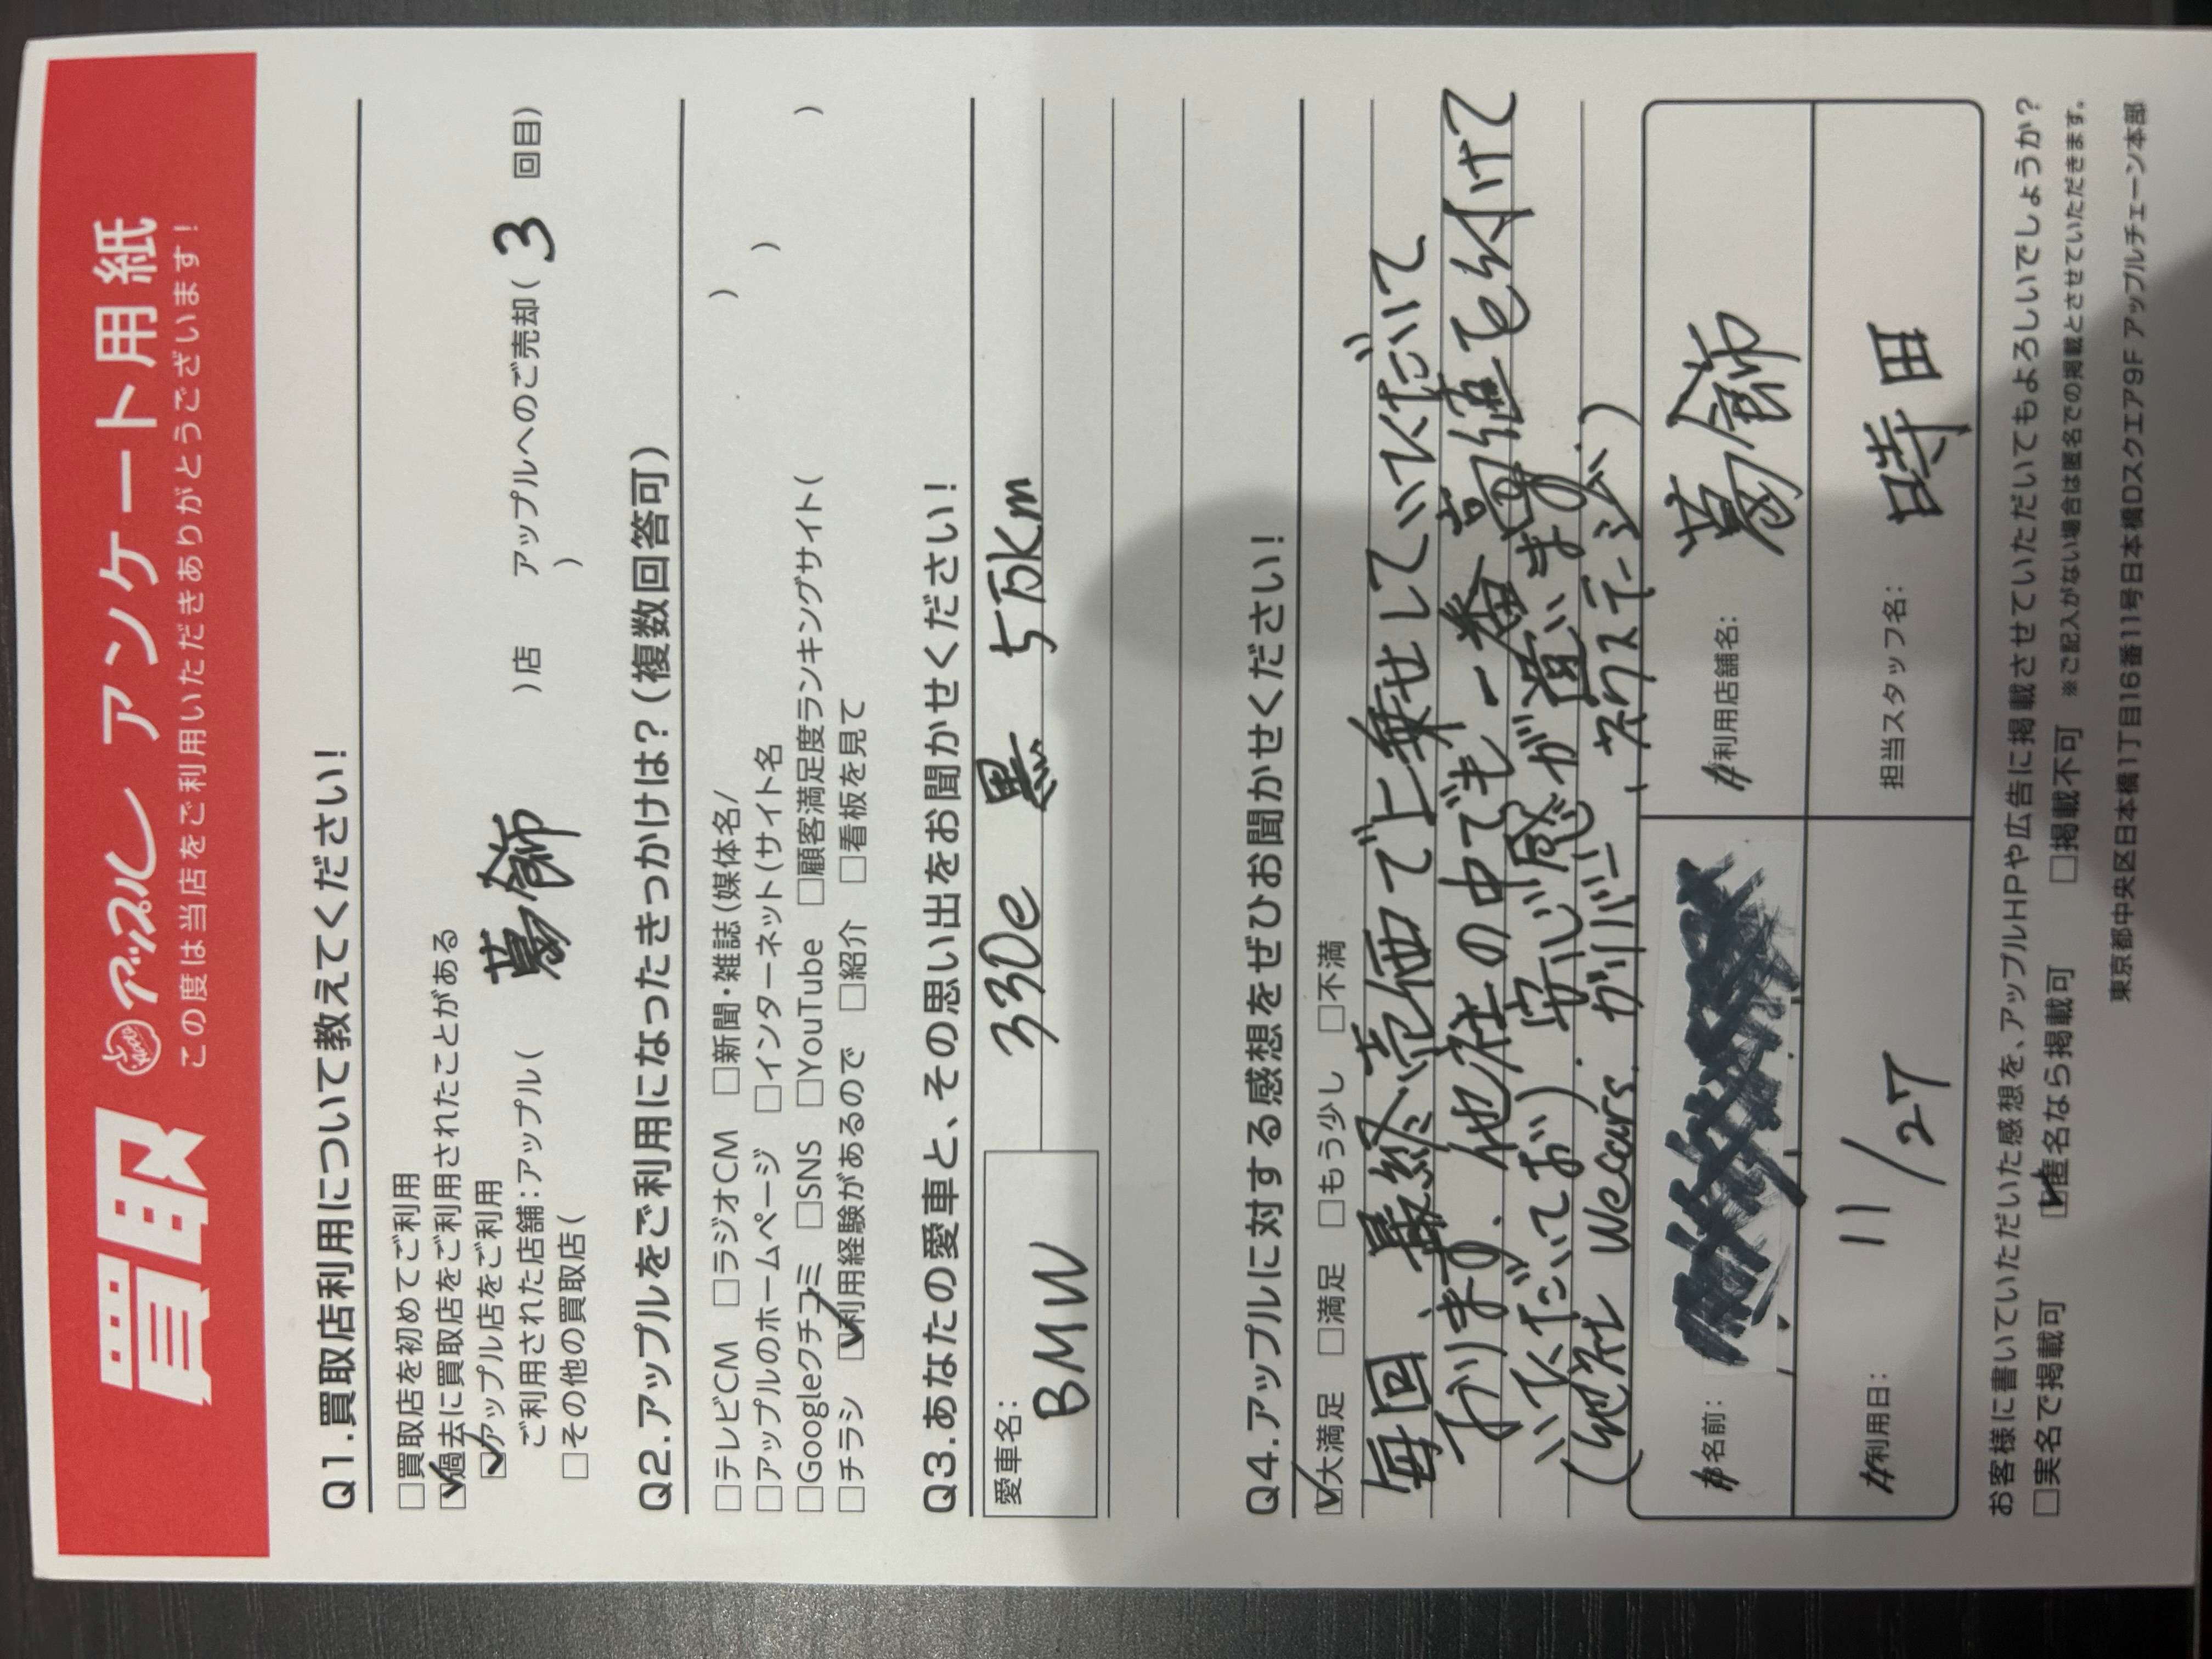 買取 アップル アンケート用紙
この度は当店をご利用いただきありがとうございます!
Q1.買取店利用について教えてください!
□買取店を初めてご利用
☑過去に買取店をご利用されたことがある
☑アップル店をご利用
ご利用された店舗:アップル( 葛飾 )店 アップルへのご売却( 3 回目)
□その他の買取店( )
Q2.アップルをご利用になったきっかけは?(複数回答可)
□テレビCM □ラジオCM □新聞・雑誌(媒体名/ )
□アップルのホームページ □インターネット(サイト名 )
□Googleクチコミ □SNS □YouTube □顧客満足度ランキングサイト( )
□チラシ ☑利用経験があるので □紹介 □看板を見て
Q3.あなたの愛車と、その思い出をお聞かせください!
愛車名:
BMW 330e 黒 5万Km
Q4.アップルに対する感想をぜひお聞かせください!
☑大満足 □満足 □もう少し □不満
毎回、最終売価で上乗せしていただいて
おります。他社の中でも一番高値を付けて
いただいており、安心感が違います。
(他社 Wecars. ガリバー、ネクステージ)
お名前:
ご利用店舗名: 葛飾
ご利用日: 11/27
担当スタッフ名: 時田
お客様に書いていただいた感想を、アップルHPや広告に掲載させていただいてもよろしいでしょうか?
□実名で掲載可 ☑匿名なら掲載可 □掲載不可 ※ご記入がない場合は匿名での掲載とさせていただきます。
東京都中央区日本橋1丁目16番11号日本橋Dスクエア9F アップルチェーン本部